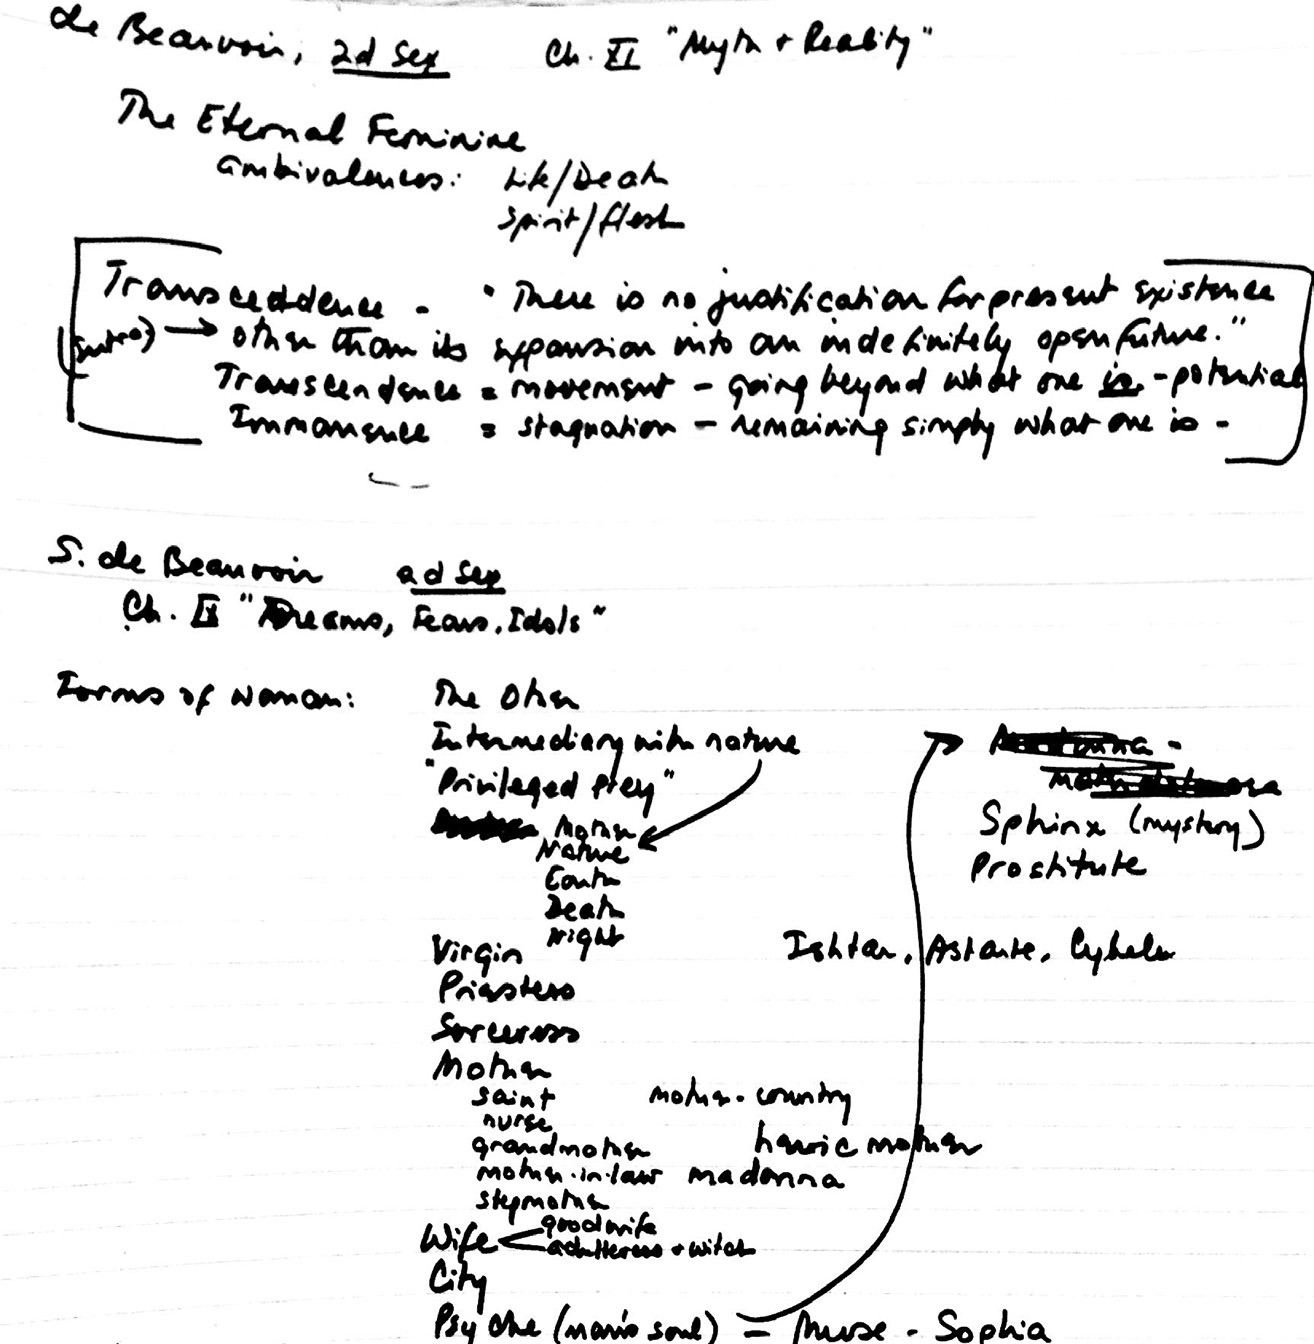 de Beauvoir, 2d Sex Ch. XI "Myth + Reality"
The Eternal Feminine
ambivalences: Life/Death
Spirit/flesh
Transcendence - "There is no justification for present existence
(intro) → other than its expansion into an indefinitely open future."
Transcendence = movement - going beyond what one is - potential
Immanence = stagnation - remaining simply what one is -
S. de Beauvoir 2d Sex
Ch. IX "Dreams, Fears, Idols"
Forms of Woman: The Other
Intermediary with nature
"Privileged Prey"
Mother
Nature
Earth
Death
Night
Virgin
Priestess
Sorceress
Mother
saint mother-country
nurse
grandmother heroic mother
mother-in-law madonna
stepmother
Wife < good wife
adulteress + witch
City
Psyche (man's soul) - Muse - Sophia
Sphinx (mystery)
Prostitute
Ishtar, Astarte, Cybele